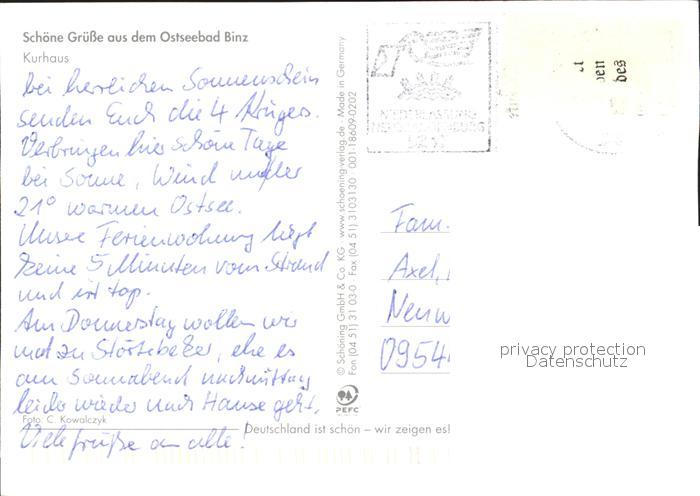 Schöne Grüße aus dem Ostseebad Binz
Kurhaus
bei herrlichen Sonnenschein
senden Euch die 4 Krügers.
Verbringen hier schöne Tage
bei Sonne, Wind und
21° warmen Ostsee.
Unsere Ferienwohnung liegt
keine 5 Minuten vom Strand
und ist top.
Am Donnerstag wollen wir
mal zu Störtebeker, ehe es
am Sonnabend nachmittag
leider wieder nach Hause geht.
Foto: C. Kowalczyk
Viele Grüße an alle!
Deutschland ist schön – wir zeigen es!
© Schöning GmbH & Co. KG · www.schoening-verlag.de · Made in Germany
Fon (04 51) 31 03-0 · Fax (04 51) 3103130 · 001-18609-0202
PEFC
des
Fam.
Axel
Neuw
0954
privacy protection
Datenschutz